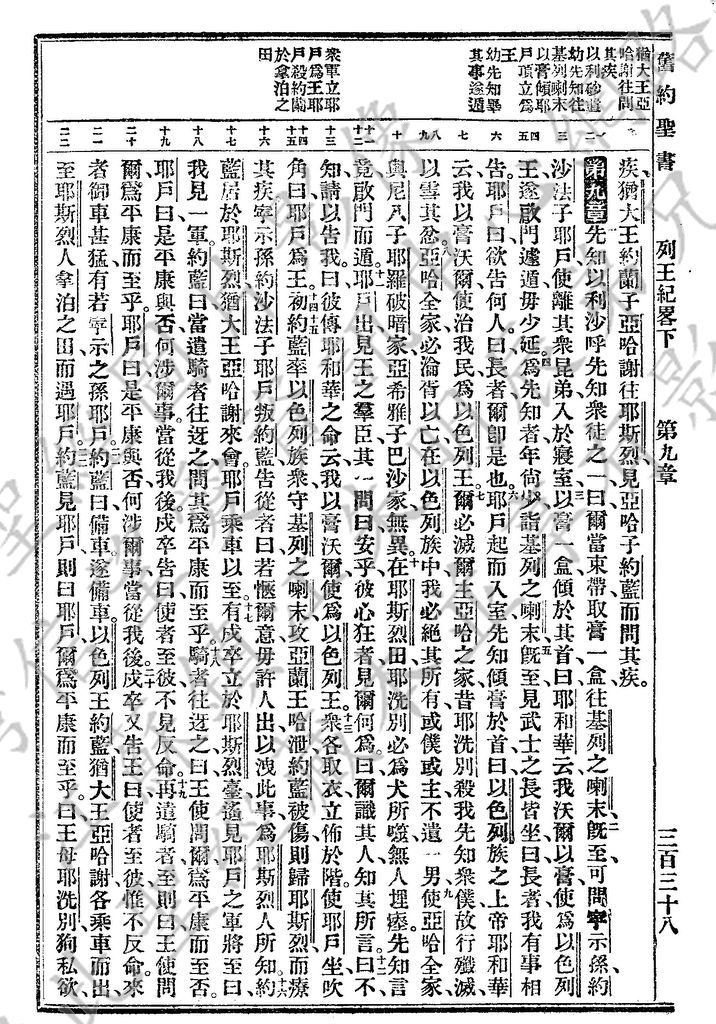 舊約聖書
列王紀畧下
第九章
三百三十八
猶大王亞
哈謝往問
其疾
以利沙遣
幼先知往
基列喇末
以膏傾耶
戶頂立爲
王
幼先知畢
其事遂遁
衆軍立耶
戶爲王耶
戶殺約蘭
於拿泊之
田
疾、猶大王約蘭子亞哈謝往耶斯烈見亞哈子約藍而問其疾。
第九章 先知以利沙呼先知衆徒之一曰爾當束帶取膏一盒往基列之喇末、二旣至可問寧示孫約
沙法子耶戶使離其衆昆弟入於寢室三以膏一盒傾於其首曰耶和華云我沃爾以膏使爲以色列
王遂啟門遽遁毋少延。四爲先知者年尚少詣基列之喇末五旣至見武士之長皆坐曰長者我有事相
告耶戶曰欲告何人曰長者爾卽是也。六耶戶起而入室先知傾膏於首曰以色列族之上帝耶和華
云我以膏沃爾使治我民爲以色列王。七爾必滅爾王亞哈之家昔耶洗別殺我先知衆僕故行殲滅
以雪其忿。八亞哈全家必淪胥以亡在以色列族中我必絕其所有或僕或主不遺一男九使亞哈全家
與尼八子耶羅破暗家亞希雅子巴沙家無異。十在耶斯烈田耶洗別必爲犬所噬無人埋瘞先知言
竟啟門而遁。十一耶戶出見王之羣臣其一問曰安乎彼心狂者見爾何爲曰爾識其人知其所言。十二曰不
知請以告我曰彼傳耶和華之命云我以膏沃爾使爲以色列王。十三衆各取衣立佈於階使耶戶坐吹
角曰耶戶爲王。十四十五初約藍率以色列族衆守基列之喇末攻亞蘭王哈泄約藍被傷則歸耶斯烈而療
其疾寧示孫約沙法子耶戶叛約藍告從者曰若愜爾意毋許人出以洩此事爲耶斯烈人所知。十六約
藍居於耶斯烈猶大王亞哈謝來會耶戶乘車以至。十七有戍卒立於耶斯烈臺遙見耶戶之軍將至曰
我見一軍約藍曰當遣騎者往迓之問其爲平康而至乎。十八騎者往迓之曰王使問爾爲平康而至否
耶戶曰是平康與否何涉爾事當從我後戍卒告曰使者至彼不見反命。十九再遣騎者至則曰王使問
爾爲平康而至乎耶戶曰是平康與否何涉爾事當從我後。二十戍卒又告王曰使者至彼惟不反命來
者御車甚猛有若寧示之孫耶戶。二一約藍曰備車遂備車以色列王約藍猶大王亞哈謝各乘車而出
至耶斯烈人拿泊之田而遇耶戶。二二約藍見耶戶則曰耶戶爾爲平康而至乎曰王母耶洗別狥私欲